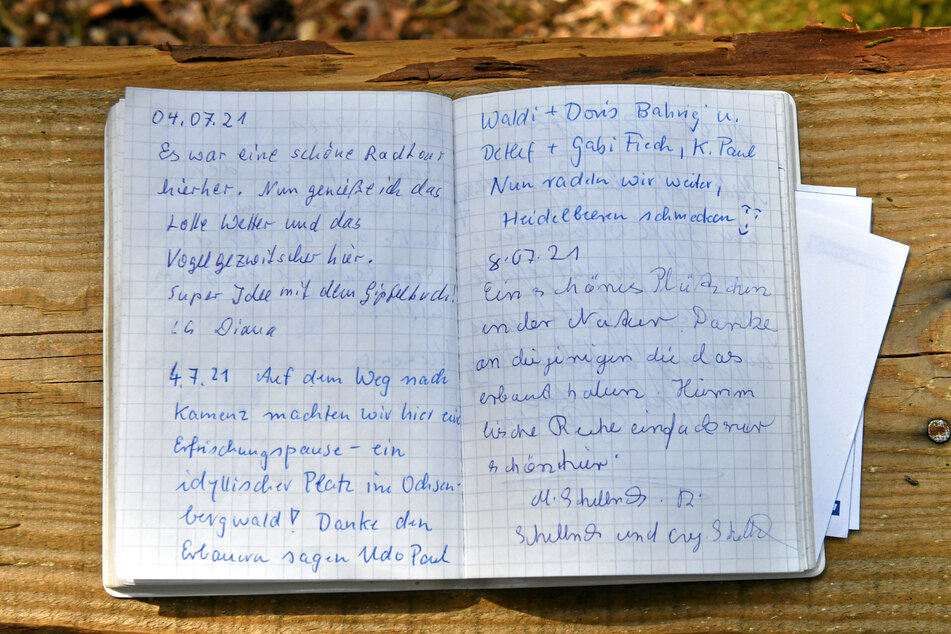 04.07.21
Es war eine schöne Radtour
hierher. Nun genieße ich das
tolle Wetter und das
Vogelgezwitscher hier.
Super Idee mit dem Gipfelbuch!
LG Diana
4.7.21 Auf dem Weg nach
Kamenz machten wir hier eine
Erfrischungspause – ein
idyllischer Platz im Ochsen-
bergwald! Danke den
Erbauern sagen Udo Paul
Waldi + Doris Bahrig u.
Detlef + Gabi Fiech, K. Paul
Nun radeln wir weiter,
Heidelbeeren schmecken
8.07.21
Ein schönes Plätzchen
in der Natur. Danke
an diejenigen die das
erbaut haben. Himm
lische Ruhe einfach nur
schön hier.
M. Schellnd
Schellnd und